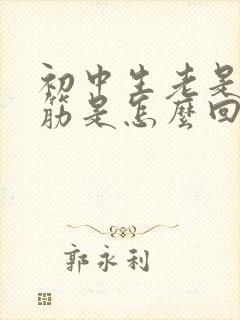 初中生老是
筋是怎麼回
郭永利